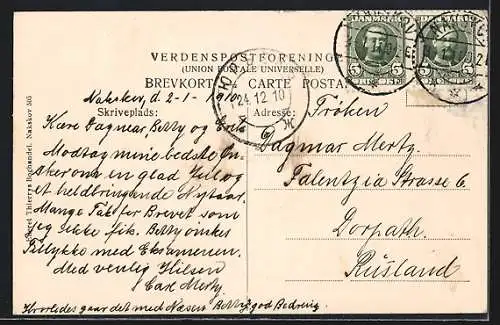 DANMARK DANMARK
5 5 5 5
VERDENSPOSTFORENINGEN
(UNION POSTALE UNIVERSELLE)
BREVKORT — CARTE POSTALE
Nakskov, d. 2-1-1910
Skriveplads:
Adresse:
24 12 10
Kære Dagmar, Betty og
Modtag mine bedste Øn-
sker om en glad Jul og
et heldbringende Nytaar.
Mange Tak for Brevet som
jeg ikke fik. Betty ønskes
Tillykke med Eksamenen.
Med venlig Hilsen
Carl Mertz.
Hvorledes gaar det med Næsen Betty? god Bedring
Fröken
Dagmar Mertz.
Falentzia Strasse 6.
Dorpath.
Rüsland
Thierrys Boghandel. Nakskov 505